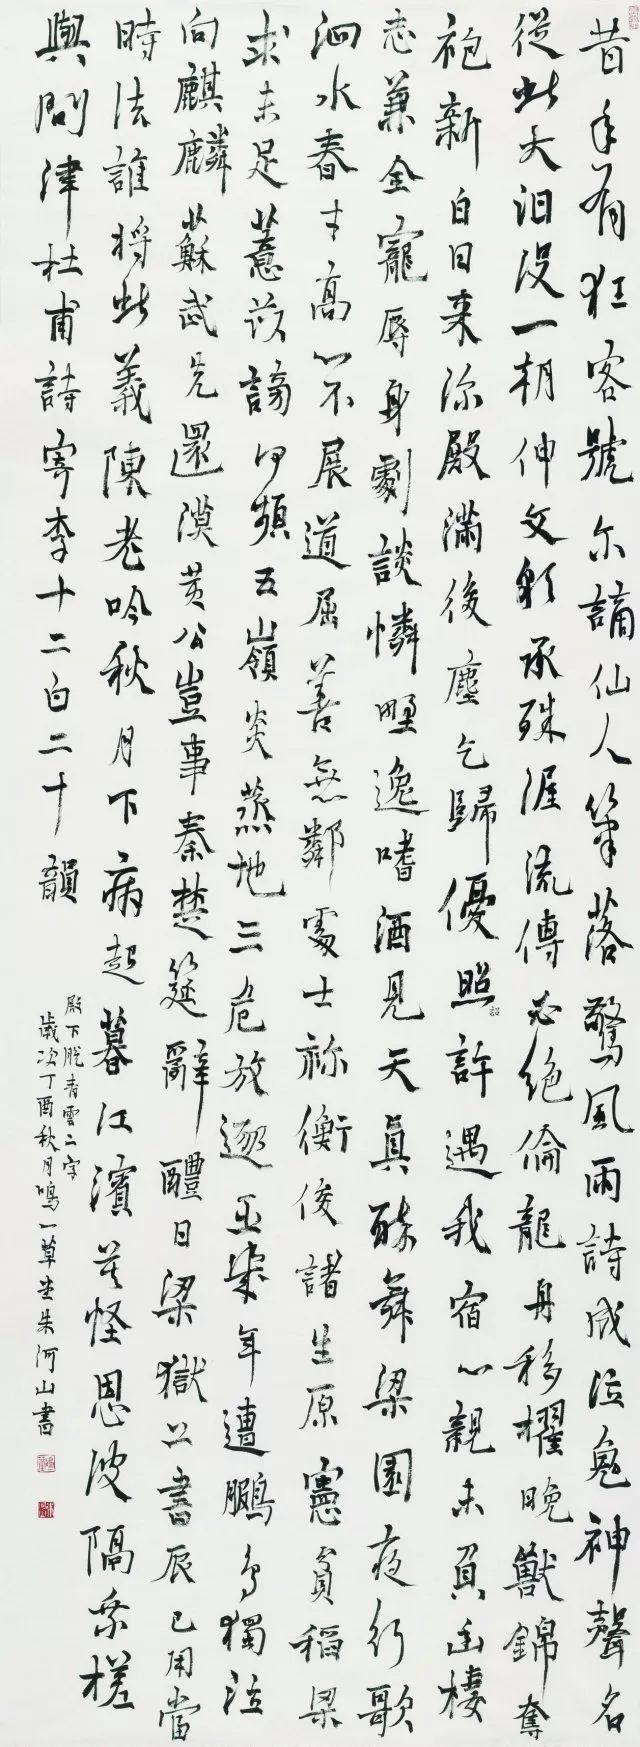 昔年有狂客號尔謫仙人筆落驚風雨詩成泣鬼神聲名
從此大汨没一朝伸文彩承殊渥流傳必絕倫龍舟移櫂晚獸錦奪
袍新白日来深殿滿後塵乞歸優照許遇我宿心親未負幽棲
志兼全寵辱身劇談憐野逸嗜酒見天真醉舞梁園夜行歌
泗水春才高心不展道屈善無鄰處士祢衡俊諸生原憲貧稻粱
求未足薏苡謗何頻五嶺炎蒸地三危放逐臣幾年遭鵬鳥獨泣
向麒麟蘇武先還漢黄公豈事秦楚筵辭醴日梁獄上書辰已用當
時法誰將此義陳老吟秋月下病起暮江濱莫怪恩波隔乘槎
與問津杜甫詩寄李十二白二十韻
殿下脱青雲二字
歲次丁酉秋月鳴一草堂朱河山書